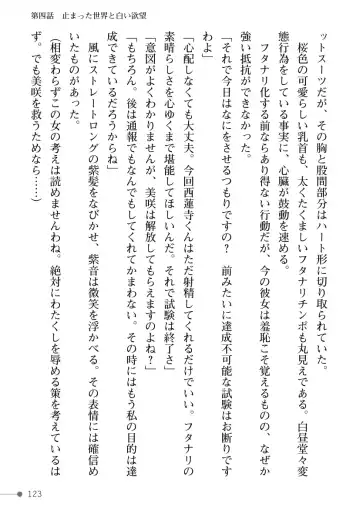 第四話　止まった世界と白い欲望
ットスーツだが、その胸と股間部分はハート形に切り取られていた。
　桜色の可愛らしい乳首も、太くたくましいフタナリチンポも丸見えである。白昼堂々変
態行為をしている事実に、心臓が鼓動を速める。
　フタナリ化する前ならあり得ない行動だが、今の彼女は羞恥こそ覚えるものの、なぜか
強い抵抗ができなかった。
「それで今日はなにをさせるつもりですの？　前みたいに達成不可能な試験はお断りです
わよ」
「心配しなくても大丈夫。今回西蓮寺くんはただ射精してくれるだけでいい。フタナリの
素晴らしさを心ゆくまで堪能してほしいんだ。それで試験は終了さ」
「意図がよくわかりませんが、美咲は解放してもらえますのよね？」
「もちろん。後は通報でもなんでもしてくれてかまわない。その時にはもう私の目的は達
成できているだろうからね」
　風にストレートロングの紫髪をなびかせ、紫音は微笑を浮かべる。その表情には確信め
いたものがあった。
（相変わらずこの女の考えは読めませんわね。絶対にわたくしを辱める策を考えているは
ず。でも美咲を救うためなら……）
123